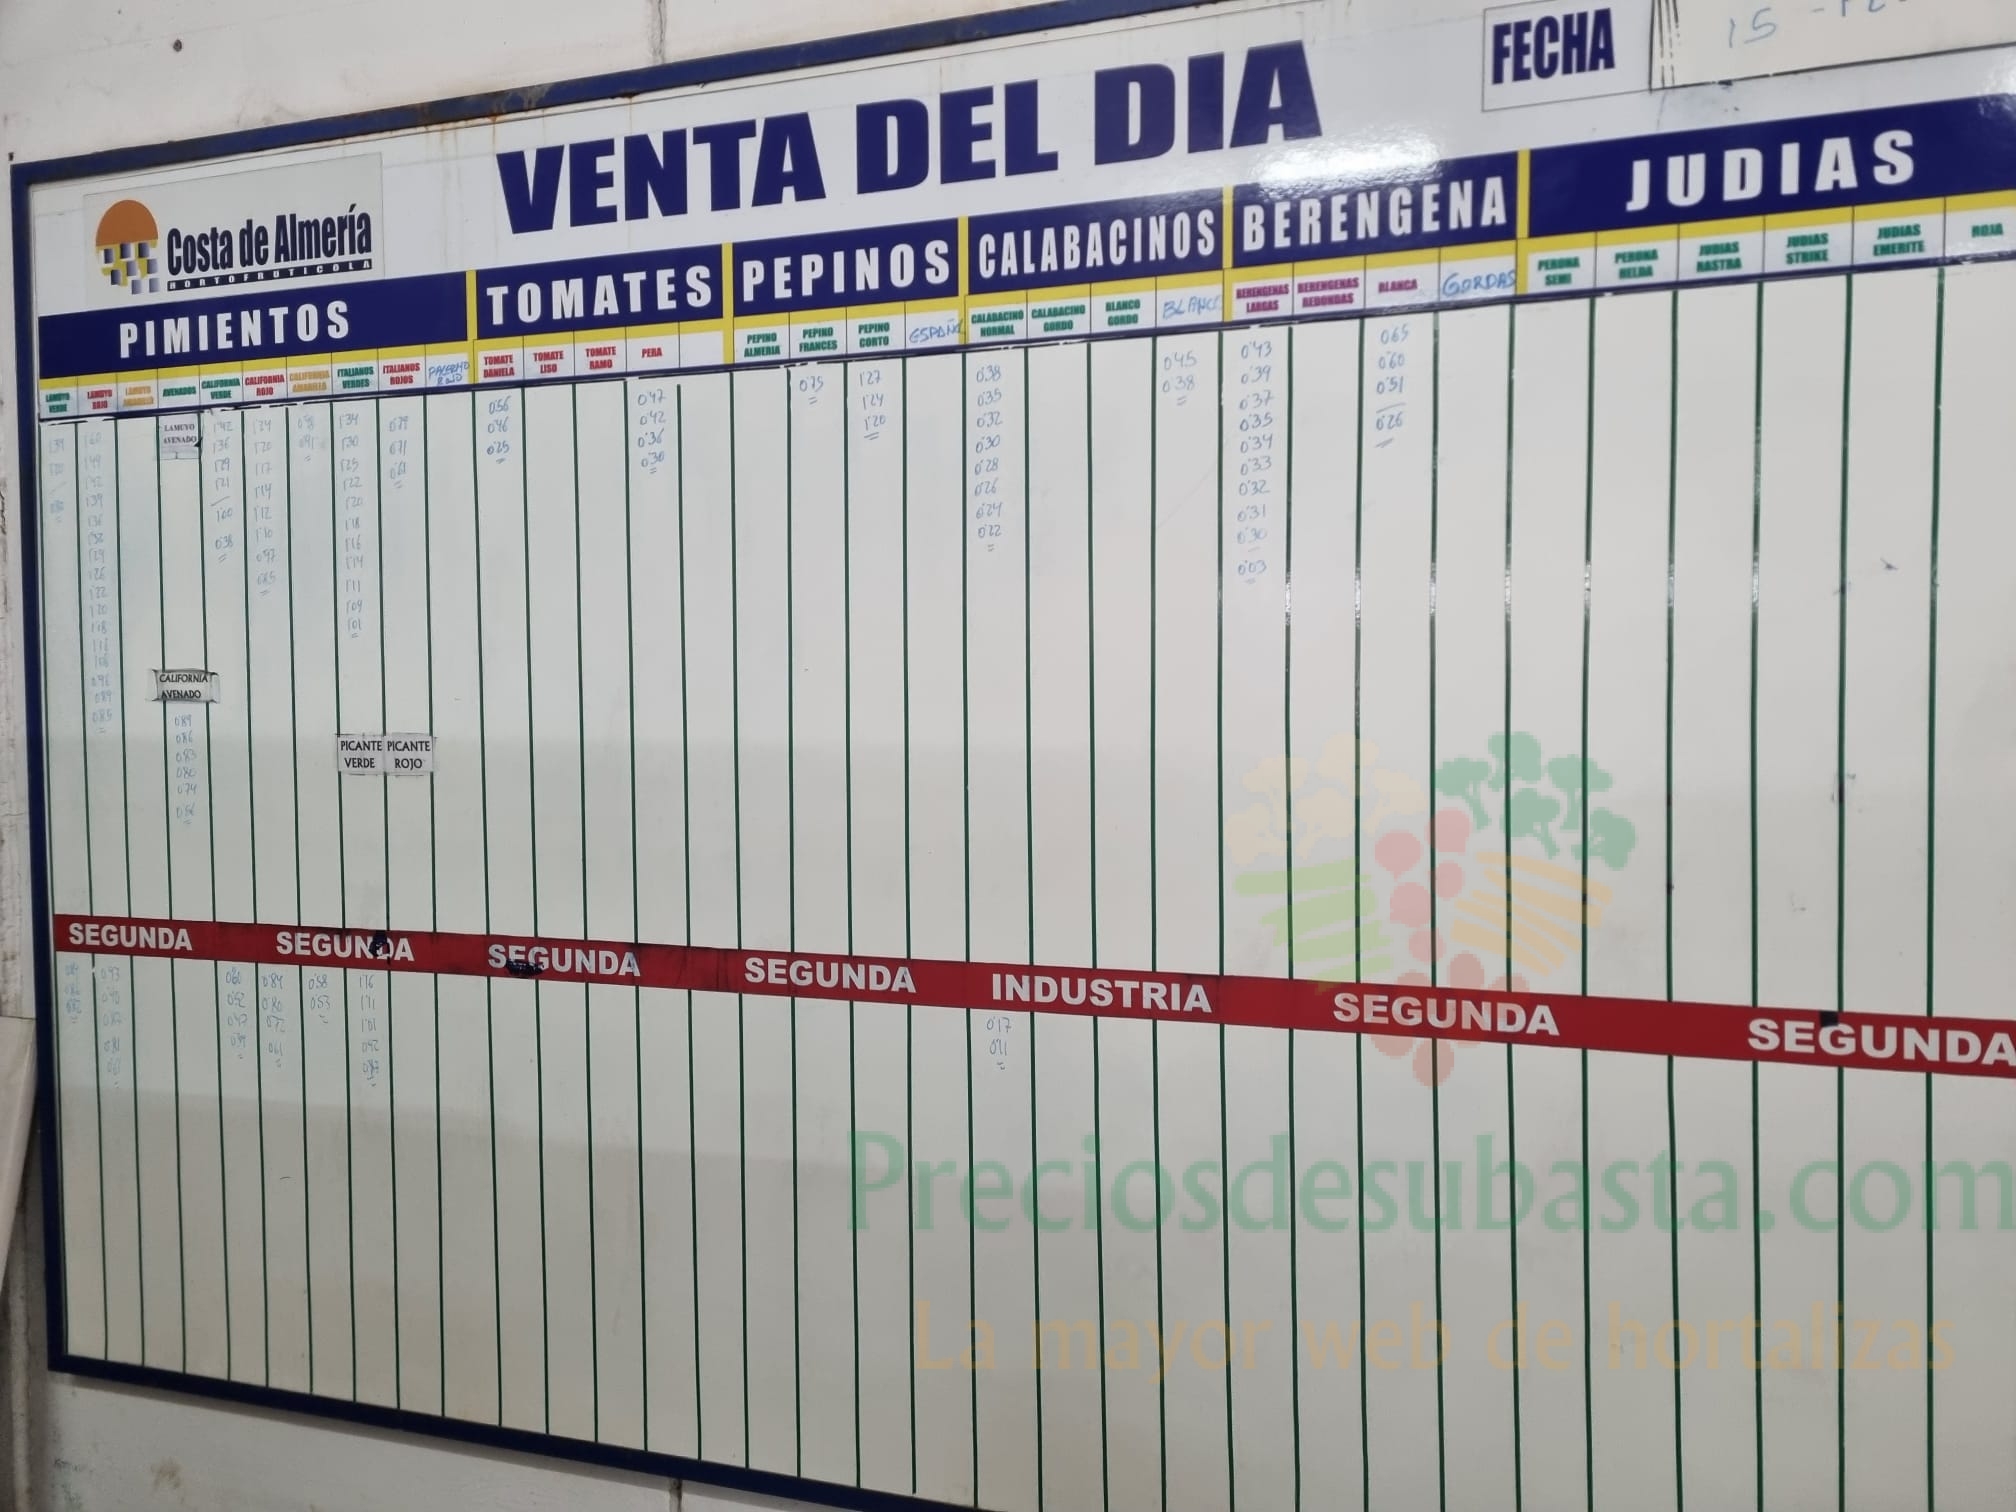 FECHA
15-12
VENTA DEL DIA
Costa de Almería
HORTOFRUTICOLA
PIMIENTOS TOMATES PEPINOS CALABACINOS BERENGENA JUDIAS
LAMUYO VERDE
LAMUYO ROJO
LAMUYO AMARILLO
AVENADOS
CALIFORNIA VERDE
CALIFORNIA ROJO
CALIFORNIA AMARILLO
ITALIANOS VERDES
ITALIANOS ROJOS
PALERMO ROJO
TOMATE DANIELA
TOMATE LISO
TOMATE RAMO
PERA
PEPINO ALMERIA
PEPINO FRANCES
PEPINO CORTO
ESPAÑOL
CALABACINO NORMAL
CALABACINO GORDO
BLANCO GORDO
BLANCO
BERENGENAS LARGAS
BERENGENAS REDONDAS
BLANCA
GORDAS
PERONA SEMI
PERONA HELDA
JUDIAS RASTRA
JUDIAS STRIKE
JUDIAS EMERITE
ROJA
LAMUYO
AVENADO
1'42
1'36
1'29
1'21
1'00
0'38
1'24
1'20
1'17
1'14
1'12
1'10
0'97
0'85
1'34
1'30
1'25
1'22
1'20
1'18
1'16
1'14
1'11
1'09
1'01
0'79
0'71
0'61
0'56
0'46
0'25
0'47
0'42
0'36
0'30
0'75
1'27
1'24
1'20
0'38
0'35
0'32
0'30
0'28
0'26
0'24
0'22
0'45
0'38
0'43
0'39
0'37
0'35
0'34
0'33
0'32
0'31
0'30
0'03
0'65
0'60
0'51
0'26
CALIFORNIA
AVENADO
0'89
0'86
0'83
0'80
0'74
0'56
PICANTE VERDE
PICANTE ROJO
SEGUNDA SEGUNDA SEGUNDA SEGUNDA INDUSTRIA SEGUNDA SEGUNDA
0'93
0'90
0'87
0'81
0'60
0'52
0'47
0'39
0'84
0'80
0'72
0'61
0'58
0'53
1'16
1'11
1'01
0'92
0'17
0'11
Preciosdesubasta.com
La mayor web de hortalizas